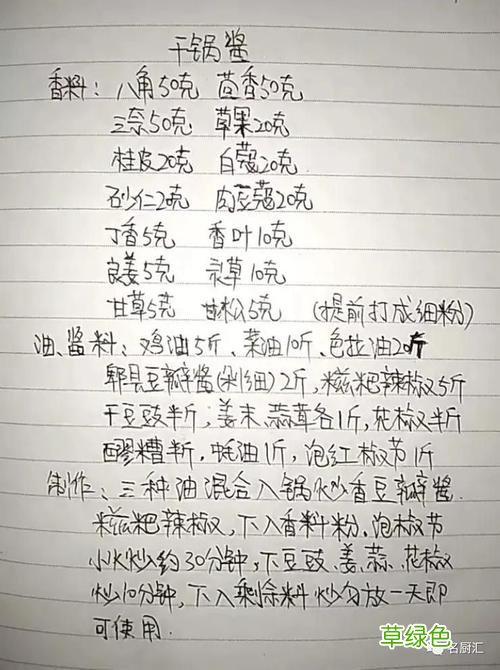 干锅酱
香料：八角50克 茴香50克
三奈50克 草果20克
桂皮20克 白蔻20克
砂仁20克 肉豆蔻20克
丁香5克 香叶10克
良姜5克 灵草10克
甘草5克 甘松5克 (提前打成细粉)
油、酱料：鸡油5斤、菜油10斤、色拉油20斤
郫县豆瓣酱(剁细)2斤，糍粑辣椒5斤
干豆豉半斤，姜末、蒜茸各1斤，花椒半斤
醪糟半斤，蚝油1斤，泡红椒节1斤
制作：三种油混合入锅炒香豆瓣酱
糍粑辣椒，下入香料粉，泡椒节
小火炒约30分钟，下豆豉、姜、蒜、花椒
炒10分钟，下入剩余料炒匀放一天即
可使用.
草绿色
名厨汇